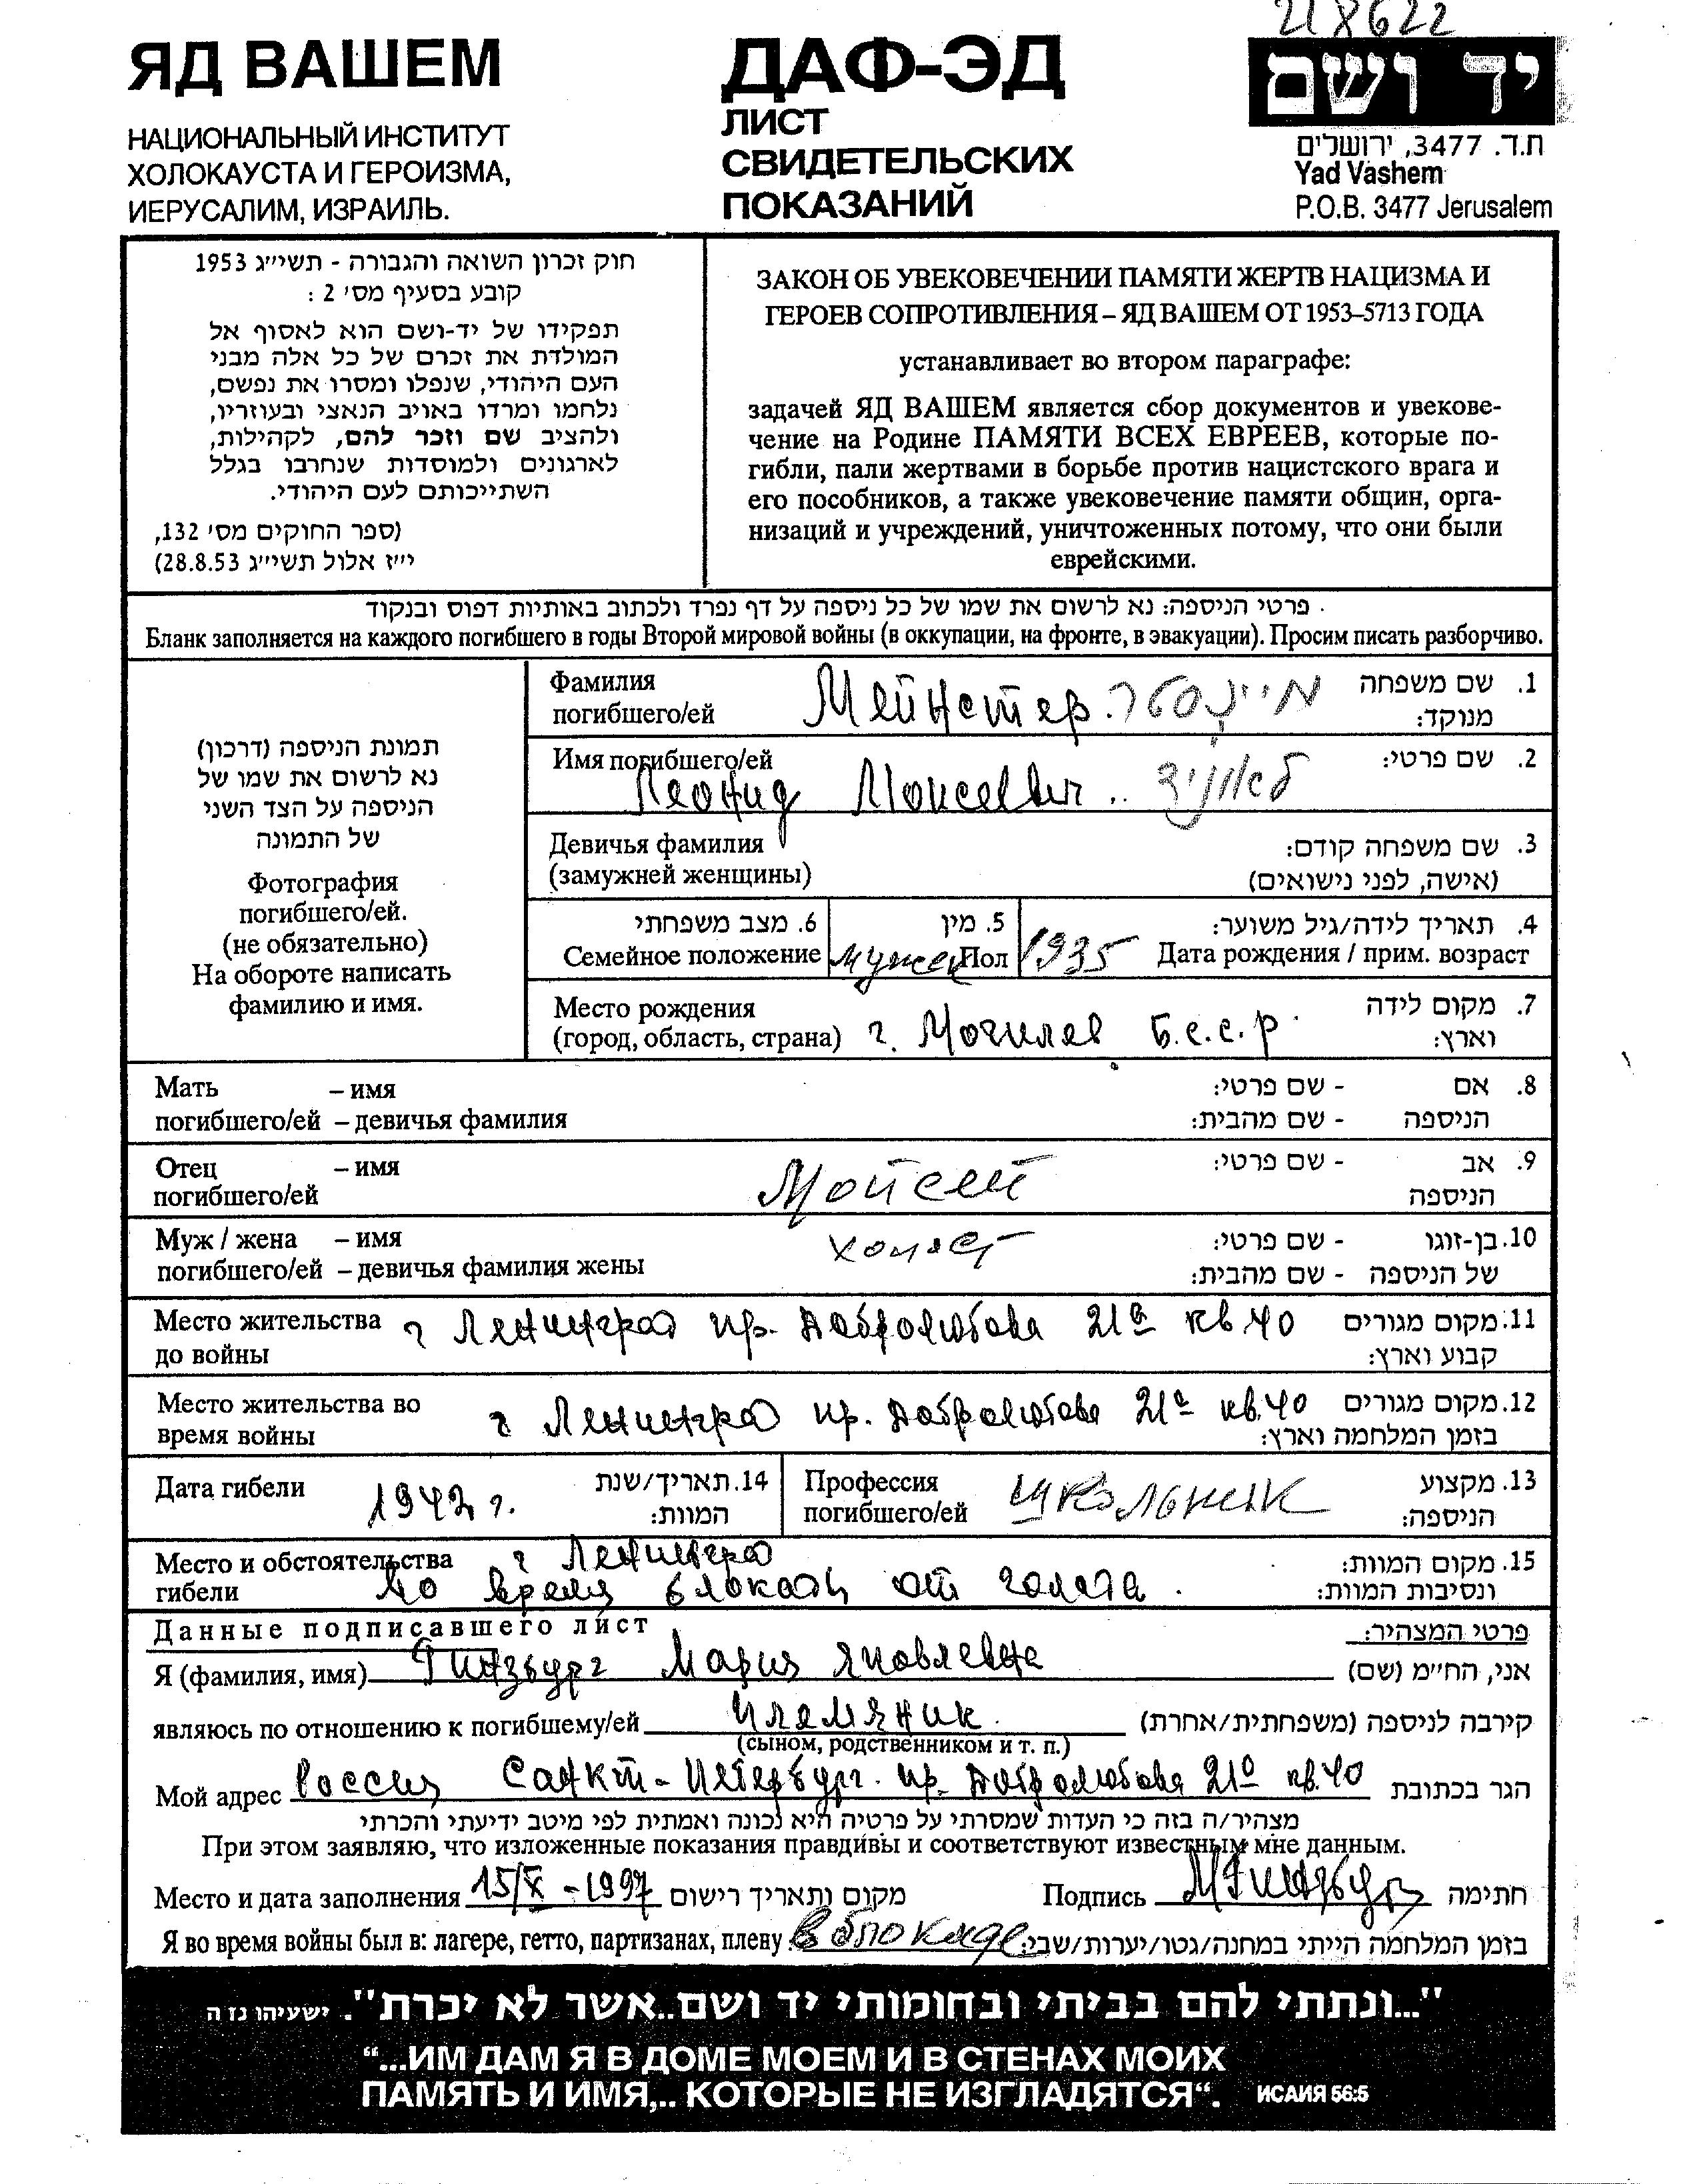 218622
ЯД ВАШЕМ
НАЦИОНАЛЬНЫЙ ИНСТИТУТ
ХОЛОКАУСТА И ГЕРОИЗМА,
ИЕРУСАЛИМ, ИЗРАИЛЬ.
ДАФ-ЭД
ЛИСТ
СВИДЕТЕЛЬСКИХ
ПОКАЗАНИЙ
יד ושם
ת.ד. 3477, ירושלים
Yad Vashem
P.O.B. 3477 Jerusalem
חוק זכרון השואה והגבורה - תשי״ג 1953
קובע בסעיף מס׳ 2 :
תפקידו של יד-ושם הוא לאסוף אל
המולדת את זכרם של כל אלה מבני
העם היהודי, שנפלו ומסרו את נפשם,
נלחמו ומרדו באויב הנאצי ובעוזריו,
ולהציב שם וזכר להם, לקהילות,
לארגונים ולמוסדות שנחרבו בגלל
השתייכותם לעם היהודי.
(ספר החוקים מס׳ 132,
י״ז אלול תשי״ג 28.8.53)
ЗАКОН ОБ УВЕКОВЕЧЕНИИ ПАМЯТИ ЖЕРТВ НАЦИЗМА И
ГЕРОЕВ СОПРОТИВЛЕНИЯ – ЯД ВАШЕМ ОТ 1953–5713 ГОДА
устанавливает во втором параграфе:
задачей ЯД ВАШЕМ является сбор документов и увекове-
чение на Родине ПАМЯТИ ВСЕХ ЕВРЕЕВ, которые по-
гибли, пали жертвами в борьбе против нацистского врага и
его пособников, а также увековечение памяти общин, орга-
низаций и учреждений, уничтоженных потому, что они были
еврейскими.
פרטי הניספה: נא לרשום את שמו של כל ניספה על דף נפרד ולכתוב באותיות דפוס ובנקוד
Бланк заполняется на каждого погибшего в годы Второй мировой войны (в оккупации, на фронте, в эвакуации). Просим писать разборчиво.
תמונת הניספה (דרכון)
נא לרשום את שמו של
הניספה על הצד השני
של התמונה
Фотография
погибшего/ей.
(не обязательно)
На обороте написать
фамилию и имя.
Фамилия Мейнстер. מיינסטר 1. שם משפחה
погибшего/ей מנוקד:
Имя погибшего/ей 2. שם פרטי:
Леонид Моисеевич .. לאוניד
Девичья фамилия 3. שם משפחה קודם:
(замужней женщины) (אישה, לפני נישואים)
6. מצב משפחתי 5. מין 4. תאריך לידה/גיל משוער:
Семейное положение мужск Пол 1935 Дата рождения / прим. возраст
Место рождения 7. מקום לידה
(город, область, страна) г. Могилев Б.С.С.Р. וארץ:
Мать – имя 8. אם - שם פרטי:
погибшего/ей – девичья фамилия הניספה - שם מהבית:
Отец – имя Мойсей 9. אב - שם פרטי:
погибшего/ей הניספה
Муж / жена – имя холост 10. בן-זוגו - שם פרטי:
погибшего/ей – девичья фамилия жены של הניספה - שם מהבית:
Место жительства г Ленинград пр. Добролюбова 21а кв 40 11. מקום מגורים
до войны קבוע וארץ:
Место жительства во г Ленинград пр. Добролюбова 21а кв. 40 12. מקום מגורים
время войны בזמן המלחמה וארץ:
Дата гибели 1942 г. 14. תאריך/שנת
המוות:
Профессия школьник 13. מקצוע
погибшего/ей הניספה:
Место и обстоятельства г Ленинград 15. מקום המוות:
гибели во время блокады от голода. ונסיבות המוות:
Данные подписавшего лист פרטי המצהיר:
Я (фамилия, имя) Гинзбург Мария Яковлевна אני, הח״מ (שם)
являюсь по отношению к погибшему/ей племяник. קירבה לניספה (משפחתית/אחרת)
(сыном, родственником и т. п.)
Мой адрес Россия Санкт-Петербург. пр. Добролюбова 21а кв. 40 הגר בכתובת
מצהיר/ה בזה כי העדות שמסרתי על פרטיה היא נכונה ואמתית לפי מיטב ידיעתי והכרתי
При этом заявляю, что изложенные показания правдивы и соответствуют известным мне данным.
Место и дата заполнения 15/X - 1997 מקום ותאריך רישום Подпись МГинзбург חתימה
Я во время войны был в: лагере, гетто, партизанах, плену в блокаде בזמן המלחמה הייתי במחנה/גטו/יערות/שבי:
"...ונתתי להם בביתי ובחומותי יד ושם..אשר לא יכרת". ישעיהו נז ה
“...ИМ ДАМ Я В ДОМЕ МОЕМ И В СТЕНАХ МОИХ
ПАМЯТЬ И ИМЯ,.. КОТОРЫЕ НЕ ИЗГЛАДЯТСЯ“. ИСАИЯ 56:5